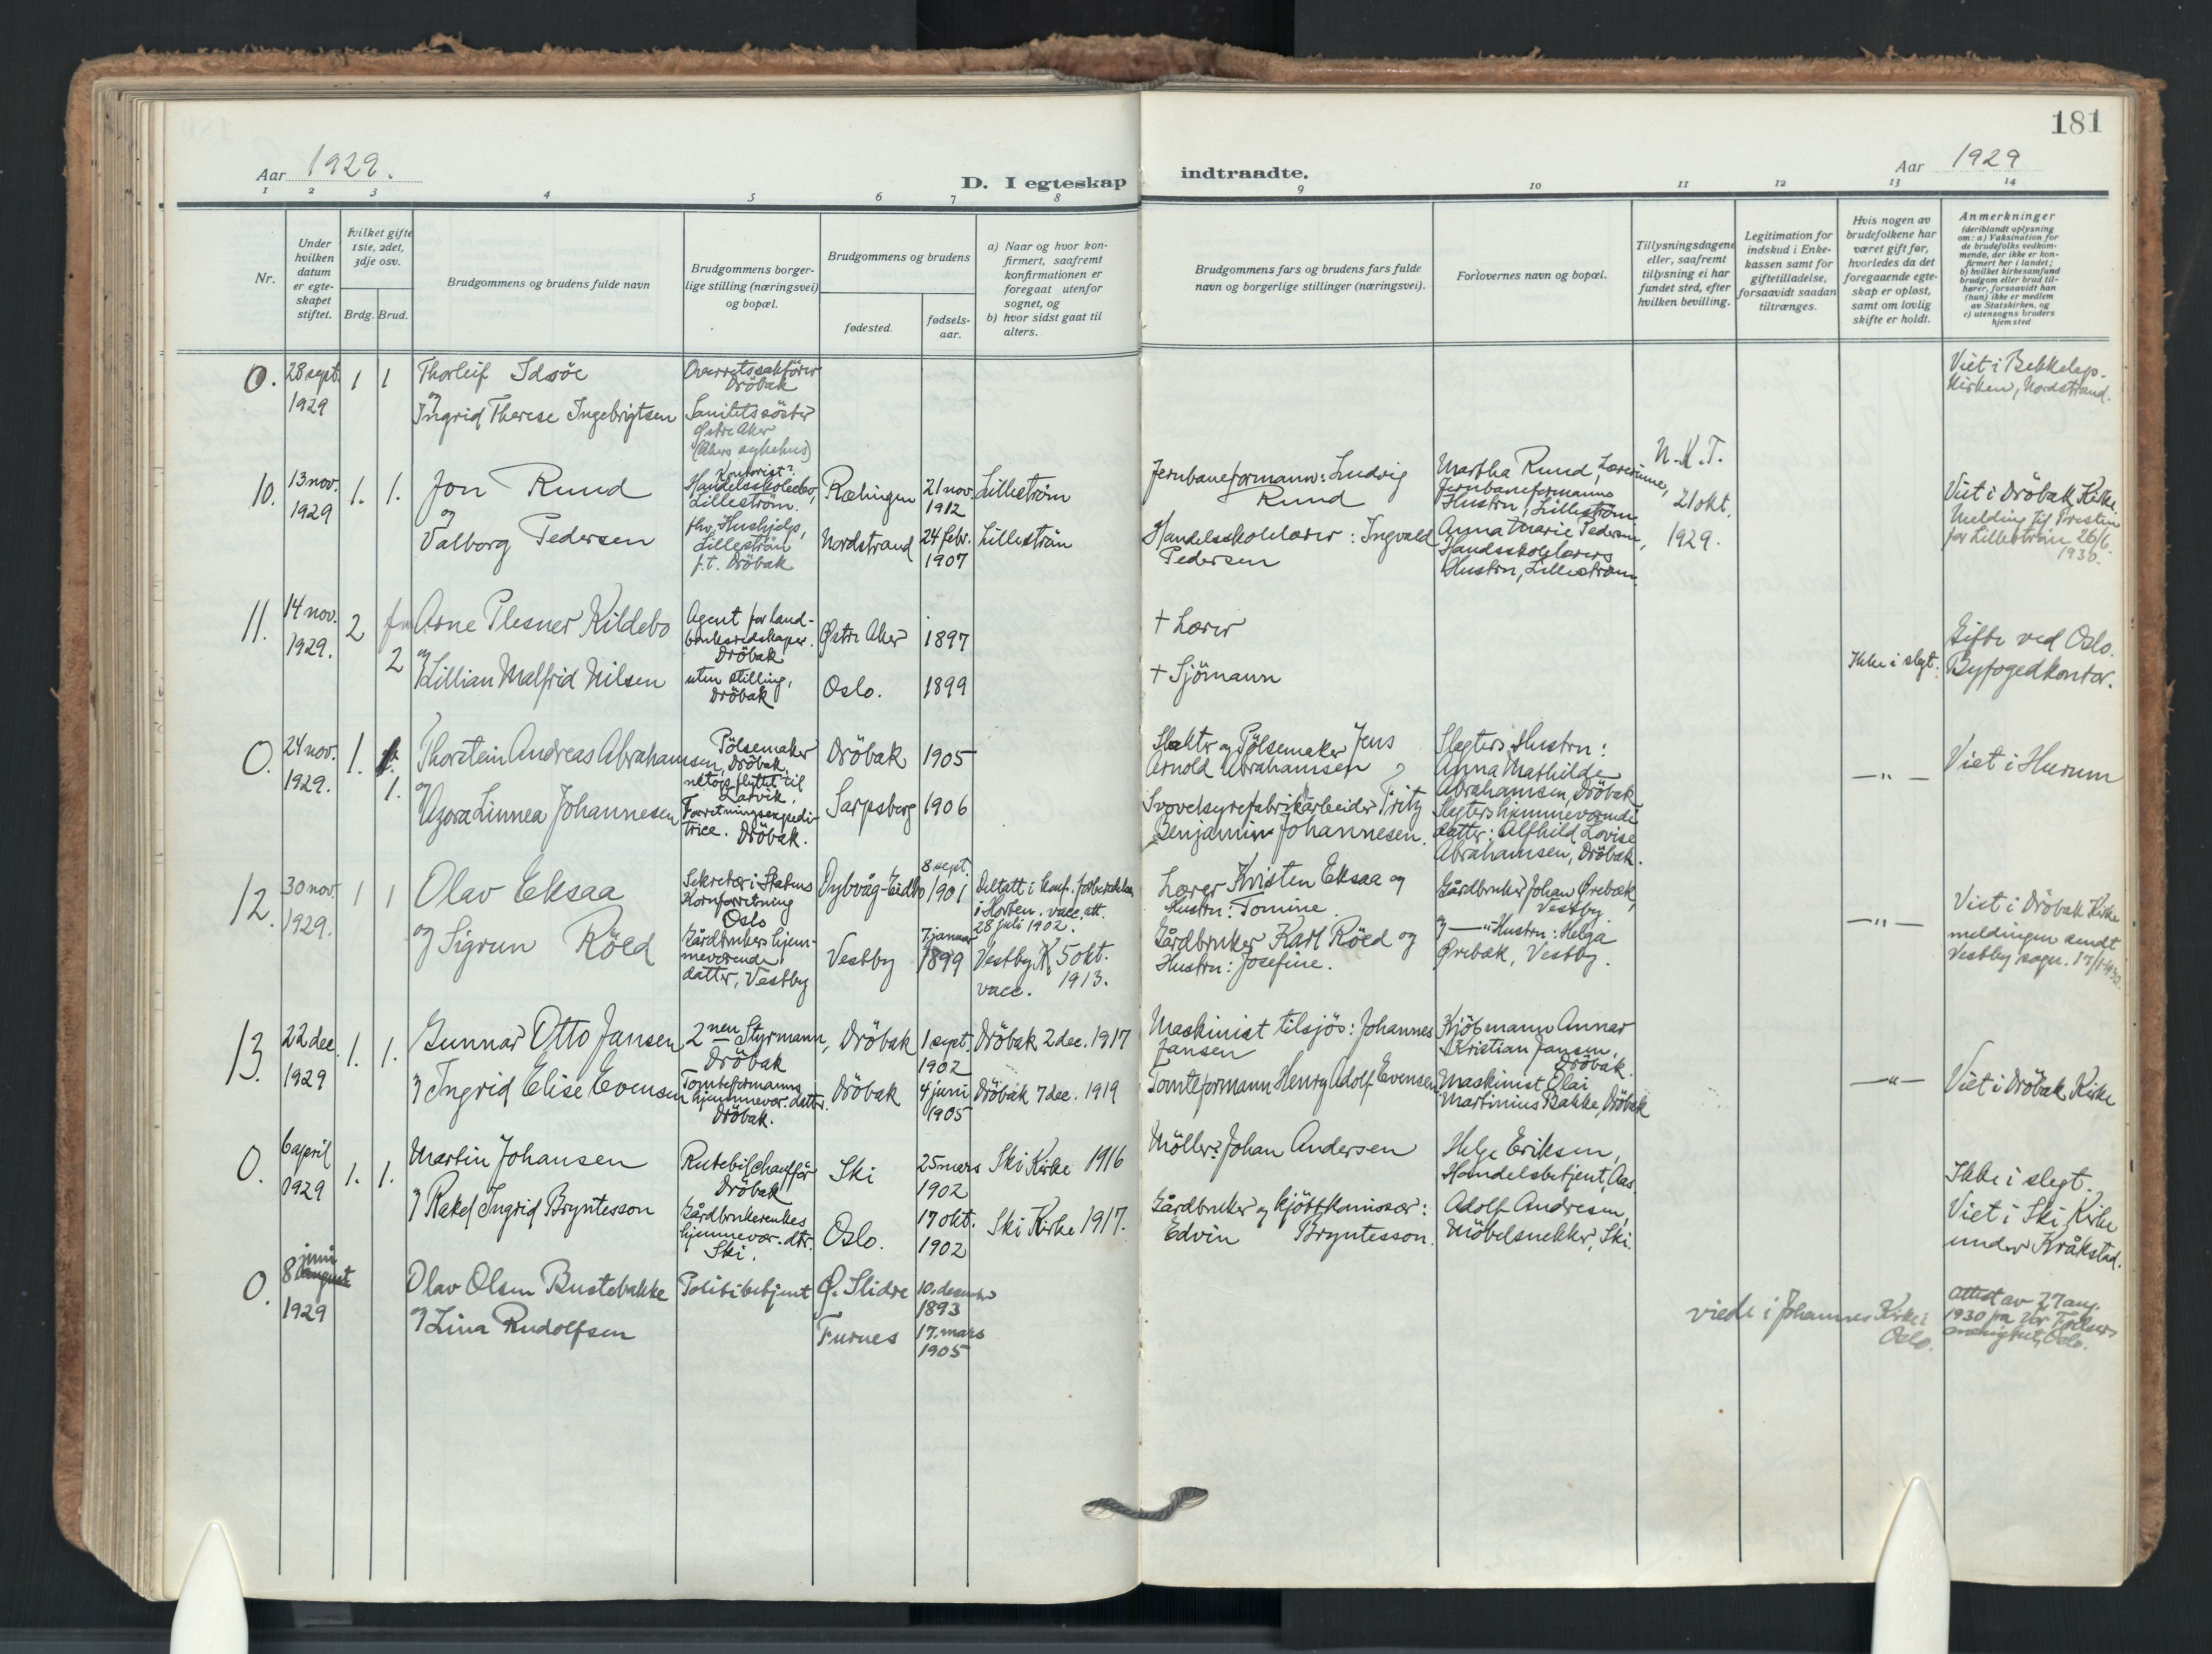 181
Aar 1929.
D. I egteskap indtraadte.
Aar 1929
1 2 3 4 5 6 7 8 9 10 11 12 13 14
Nr.
Under hvilken datum er egteskapet stiftet.
Hvilket gifte 1ste, 2det, 3dje osv.
Brdg. Brud.
Brudgommens og brudens fulde navn
Brudgommens borgerlige stilling (næringsvei) og bopæl.
Brudgommens og brudens
fødested.
fødselsaar.
a) Naar og hvor konfirmert, saafremt konfirmationen er foregaat utenfor sognet, og
b) hvor sidst gaat til alters.
Brudgommens fars og brudens fars fulde navn og borgerlige stillinger (næringsvei).
Forlovernes navn og bopæl.
Tillysningsdagene eller, saafremt tillysning ei har fundet sted, efter hvilken bevilling.
Legitimation for indskud i Enkekassen samt for giftetilladelse, forsaavidt saadan tiltrænges.
Hvis nogen av brudefolkene har været gift før, hvorledes da det foregaaende egteskap er opløst, samt om lovlig skifte er holdt.
Anmerkninger
(deriblandt oplysning om: a) Vaksination for de brudefolks vedkommende, der ikke er konfirmert her i landet;
b) hvilket kirkesamfund brudgom eller brud tilhører, forsaavidt han (hun) ikke er medlem av Statskirken, og
c) utensogns bruders hjemsted
0. 28 sept. 1929 1 1
Thorleif Idsöe
og
Ingrid Therese Ingebrigtsen
Overretssakförer
Dröbak
Sanitetssöster
Østre Aker
(Akers sykehus)
Viet i Bekkelags-
Kirken, Nordstrand.
10. 13 nov. 1929 1. 1.
Jon Rund
og
Valborg Pedersen
Kontorist?
Lilleström.
fhv. Hushjelp,
Lilleström
f.t. Dröbak
Rælingen 21 nov. 1912 Lilleström
Nordstrand 24 febr. 1907 Lilleström
Jernbaneformann: Ludvig
Rund
Handelsskolelærer: Ingvald
Pedersen
Martha Rund, Lærerinne,
Jernbaneformanns
Hustru, Lilleström
Anna Marie Pedersen,
Handsskolelærers
Hustru, Lilleström.
N.K.T.
21 okt.
1929.
Viet i Dröbak Kirke.
Melding til Presten
for Lilleström 26/6.
1930.
11. 14 nov. 1929. 2 2
Arne Plesner Kildebo
og
Lillian Malfrid Nilsen
Agent for land-
bruksredskaper.
Dröbak
uten stilling,
Dröbak
Østre Aker 1897
Oslo. 1899
+ Lærer
+ Sjömann
Ikke i slegt.
Gifte ved Oslo.
Byfogedkontor.
0. 24 nov. 1929. 1. 1.
Thorstein Andreas Abrahamsen,
og
Agora Linnea Johannesen
Pölsemaker
Dröbak,
netop flyttet til
Larvik.
Forretningsexpedi-
trice. Dröbak.
Dröbak 1905
Sarpsborg 1906
Slakter og Pölsemaker Jens
Arnold Abrahamsen
Svovelsyrefabrikarbeider Fritz
Benjamin Johannesen.
Slagters Hustru:
Anna Mathilde
Abrahamsen, Dröbak
Slagters hjemmeværende
datter: Alfhild Lovise
Abrahamsen, Dröbak.
— " —
Viet i Hurum
12. 30 nov. 1929. 1 1
Olav Eksaa
og Sigrun Röed
Sekretær i Statens
Kornforretning
Oslo
Gårdbrukers hjem-
meværende
datter, Vestby
Dybvåg-Eidbo 8 sept. 1901
i Horten. vacc. att.
28 juli 1902.
Vestby 7 januar 1899 Vestby K. 5 okt.
vacc. 1913.
Lærer Kristen Eksaa og
Hustru: Tomine.
Gårdbruker Karl Röed og
Hustru: Josefine.
Gårdbruker Johan Ørebæk,
Vestby.
og — " Hustru: Helga
Ørebak, Vestby.
— " —
Viet i Dröbak Kirke
meldingen sendt
Vestby sogn.
13. 22 dec. 1929 1. 1.
Gunnar Otto Jansen
og Ingrid Elise Evensen
2nen Styrmann,
Dröbak
Tomteformanns
hjemmevær. datter.
Dröbak.
Dröbak 1 sept. 1902 Dröbak 2 dec. 1917
Dröbak 4 juni 1905 Dröbak 7 dec. 1919
Maskinist tilsjös: Johannes
Jansen
Tomteformann Henry Adolf Evensen
Kjöbmann Annar
Kristian Jansen,
Dröbak.
Maskinist Olai
Martinius Bakke, Dröbak
— " —
Viet i Dröbak Kirke
0. 6 april 1929 1. 1.
Martin Johansen
og Rakel Ingrid Bryntesson
Rutebilchauffør
Dröbak
Gårdbrukerenkes
hjemmevær. dtr.
Ski.
Ski 25 mars 1902 Ski Kirke 1916
Oslo. 17 okt. 1902 Ski Kirke 1917.
Möller: Johan Andersen
Gårdbruker og kjöttkomissær:
Edvin Bryntesson.
Helge Eriksen,
Handelsbetjent, Aas
Adolf Andresen,
Möbelsnekker, Ski.
Ikke i slegt.
Viet i Ski Kirke
under Kråkstad.
0. 8 juni august 1929
Olav Olsen Bustebakke
og Lina Rudolfsen
Politibetjent
Ø. Slidre 10. desember 1893
Furnes 17. mars 1905
viede i Johannes Kirke i
Oslo.
Attest av 27 aug.
1930 fra Vår Frelsers
menighet, Oslo.